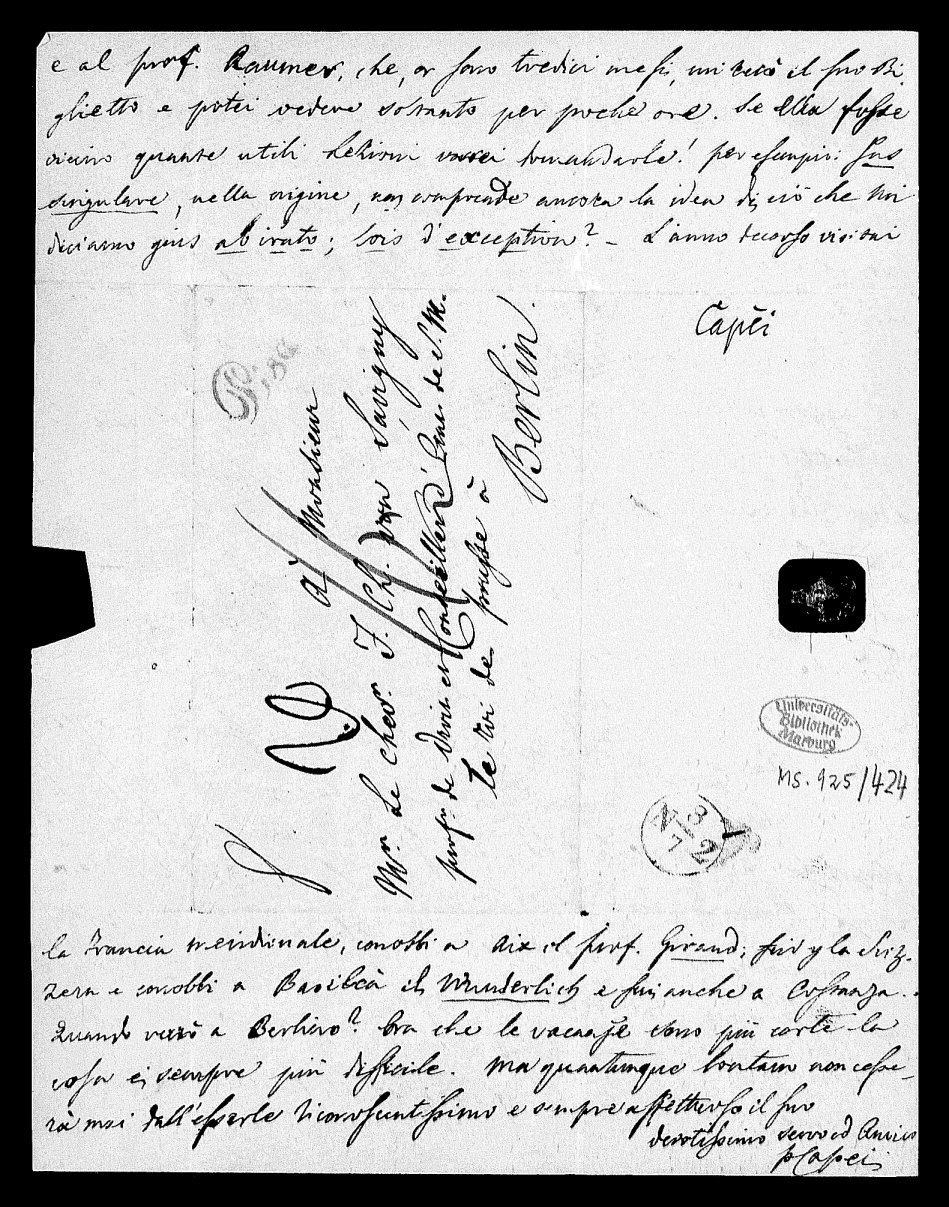 e al prof. Raumer, che, or sono tredici mesi, mi recò il suo Bi,
glietto e potei vedere soltanto per poche ore. Se Ella fosse
vicino quante utili lezioni vorrei domandarle! per esempio: Jus
singulare, nella origine, non comprende ancora la idea di ciò che noi
diciamo gius ab irato; lois d'exception? – L'anno decorso visitai
Capei
Pisa
à Monsieur
Mr. Le Chevr. F. Ch. von Savigny
profr. de Droit et Conseiller de S. M.
le Roi de prusse à
Berlin.
Universitäts-
Bibliothek
Marburg
MS. 925/424
N 3
7 2
la Francia meridionale, conobbi a Aix il prof. Giraud; fui p la Sviz-
zera e conobbi a Basilea il Wunderlich e fui anche a Costanza.
Quando verrò a Berlino? Ora che le vacanze sono più corte la
cosa è sempre più difficile. Ma quantunque lontano non cesse-
rà mai dall'esserle riconoscentissimo e sempre affettuoso il suo
devotissimo servo ed Amico
PCapei